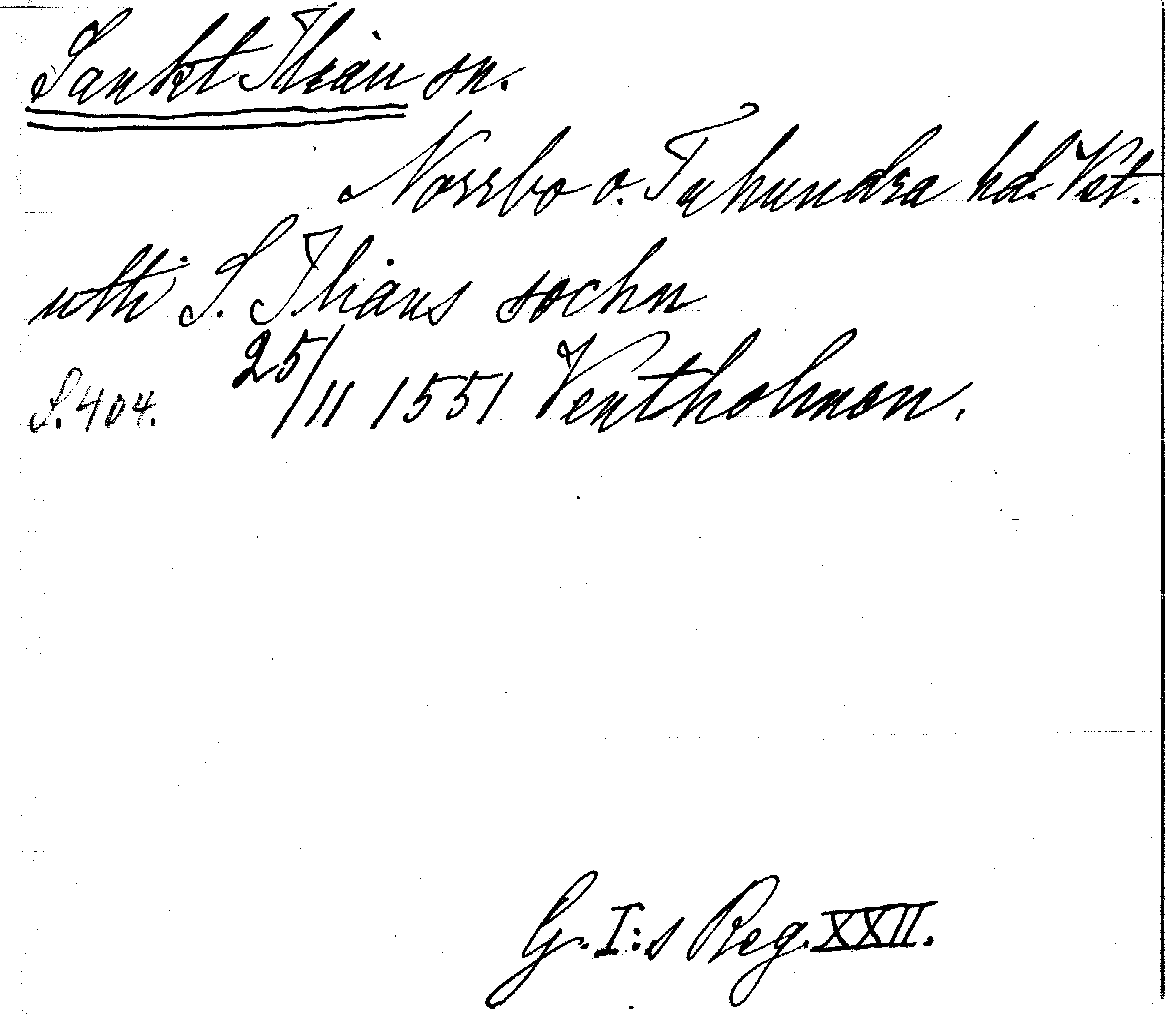 Sankt Ilian sn.
Norrbo o. Tuhundra hd. Vst.
utti S. Ilians sochn
S. 404. 25/11 1551 Ventholmen.
G. I:s Reg. XXII.